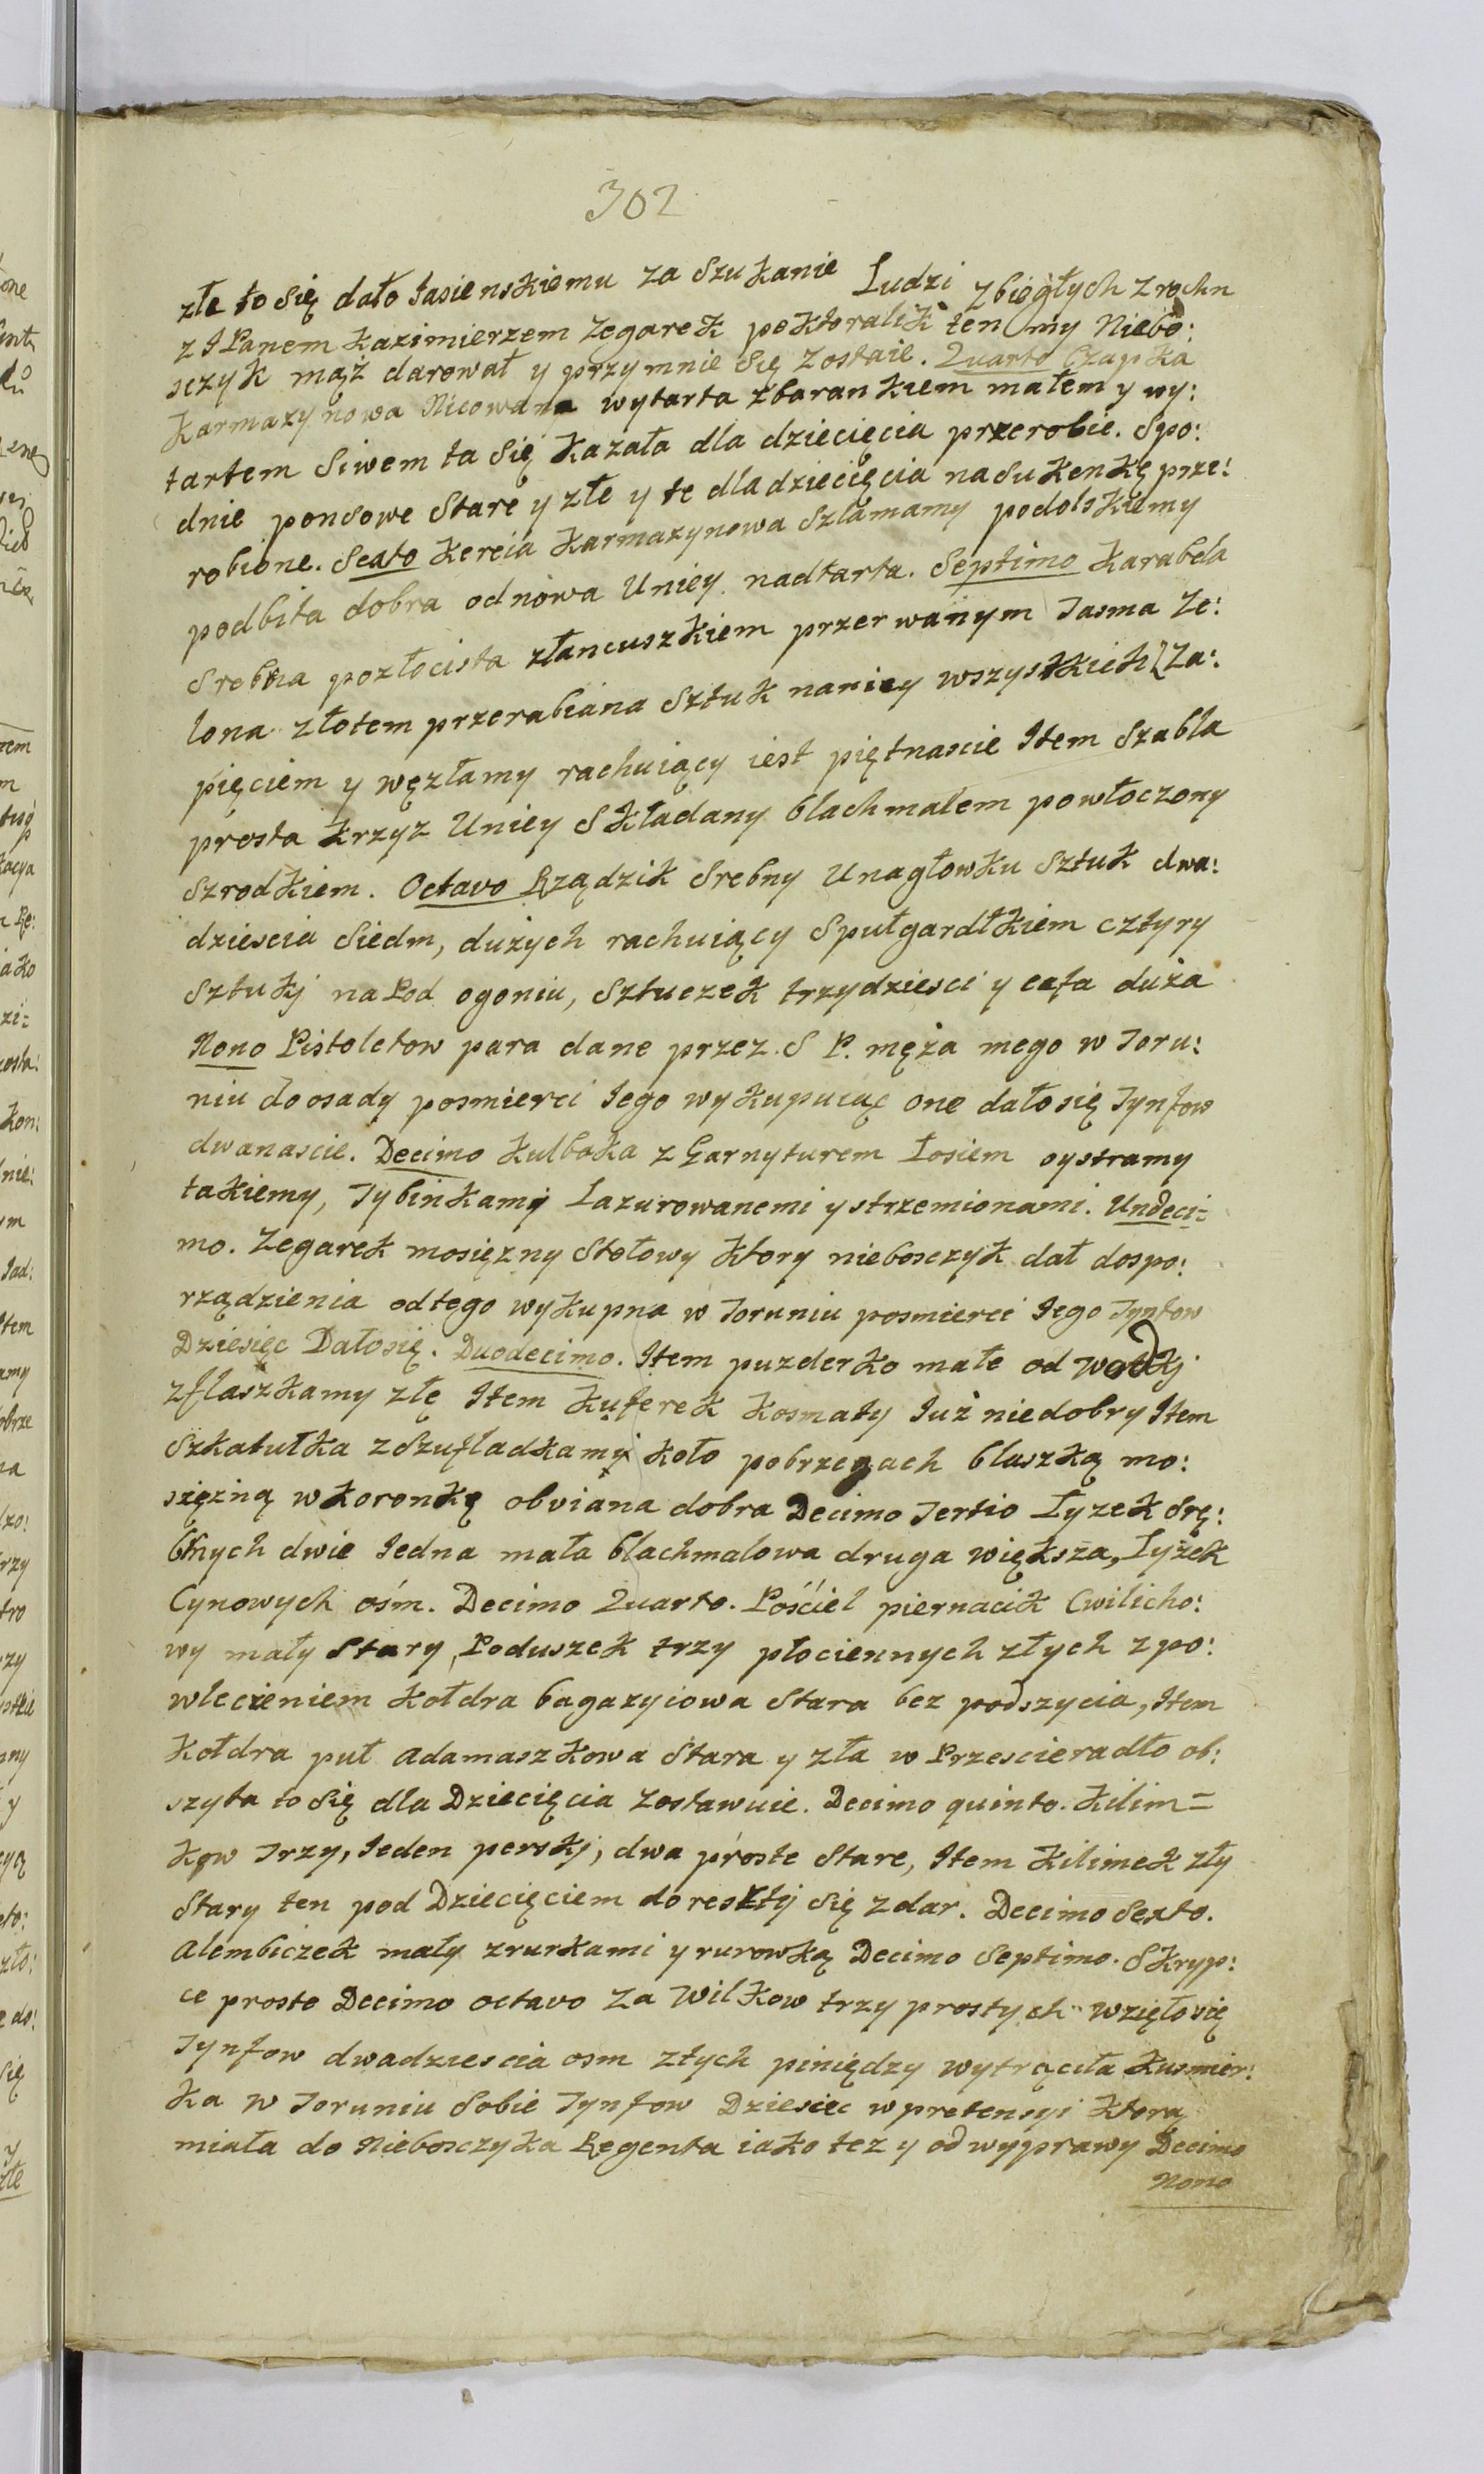 302
złe to się dało Jasienskiemu za szukanie Ludzi zbiegłych z rochn
z JPanem Kazimierzem Zegarek pektoralik ten my Niebo:
sczyk mąż darował y przymnie się zostaie. Quarto Czapka
Karmazynowa Nicowana wytarta zbarankiem małem y wy:
tartem siwem ta się kazała dla dziecięcia przerobic. Spo:
dnie ponsowe stare y złe y te dla dziecięcia na sukenkę prze:
robione. Sexto Kereia Karmazynowa Szlamamy podolskiemy
podbita dobra odnowa Uniey nadtarta. Septimo Karabela
Srebna pozłocista złancuszkiem przerwanym Tasma Ze:
lona złotem przerabiana Sztuk naniey wszystkich Za:
pięciem y węzłamy rachuiący iest piętnascie Item Szabla
prosta Krzyz Uniey Składany blachmalem powłoczony
Szrodkiem. Octavo Rządzik Srebny Unagłowku Sztuk dwa:
dziescia Siedm, dużych rachuiący Spułgardłkiem cztyry
Sztukj na Pod ogoniu, Sztuczek trzydziesci y cała duża
Nono Pistoletow para dane przez S P. męża mego w Toru:
niu do osady posmierci Jego wykupuiąc one dało się Tynfow
dwanascie. Decimo Kulbaka z Garnyturem Łosiem oystramy
takiemy, Tybinkamy Lazurowanemi y strzemionami. Undeci:
mo. Zegarek mosięzny Stołowy Ktory niebosczyk dał dospo:
rządzienia odtego wykupna w Toruniu posmierci Jego Tynfow
Dziesięc Dało się. Duodecimo. Item puzderko małe od wodkj
zflaszkamy złe Item Kuferek Kosmaty Już niedobry Item
Szkatułka z Szufladkamy koło pobrzegach blaszką mo:
siężną w koronkę obviana dobra Decimo Tertio Łyzek Sre:
bnych dwie Jedna mała blachmalowa druga większa, Łyżek
Cynowych ośm. Decimo Quarto. Pościel piernacik Cwilicho:
wy mały stary, Poduszek trzy płociennych złych z po:
wleczeniem Kołdra bagazyiowa Stara bez podszycia, Item
Kołdra puł adamaszkowa Stara y zła w Przescieradło ob:
szyta to się dla Dziecięcia Zostawuie. Decimo quinto. Kilim=
kow Trzy, Jeden perskj, dwa proste Stare, Item Kilimek zły
Stary ten pod Dziecięciem do resztj się zdar. Decimo Sexto.
Alembiczek mały zrurkami y rurowką Decimo Septimo. Skryp:
ce proste Decimo octavo Za Wilkow trzy prostych wzięło się
Tynfow dwadziescia osm złych piniędzy wytrąciła Kusmier:
ka w Toruniu Sobie Tynfow Dziesiec w pretensyi Ktorą
miała do Nieboscżyka Regenta iako tez y od wyprawy Decimo
Nono